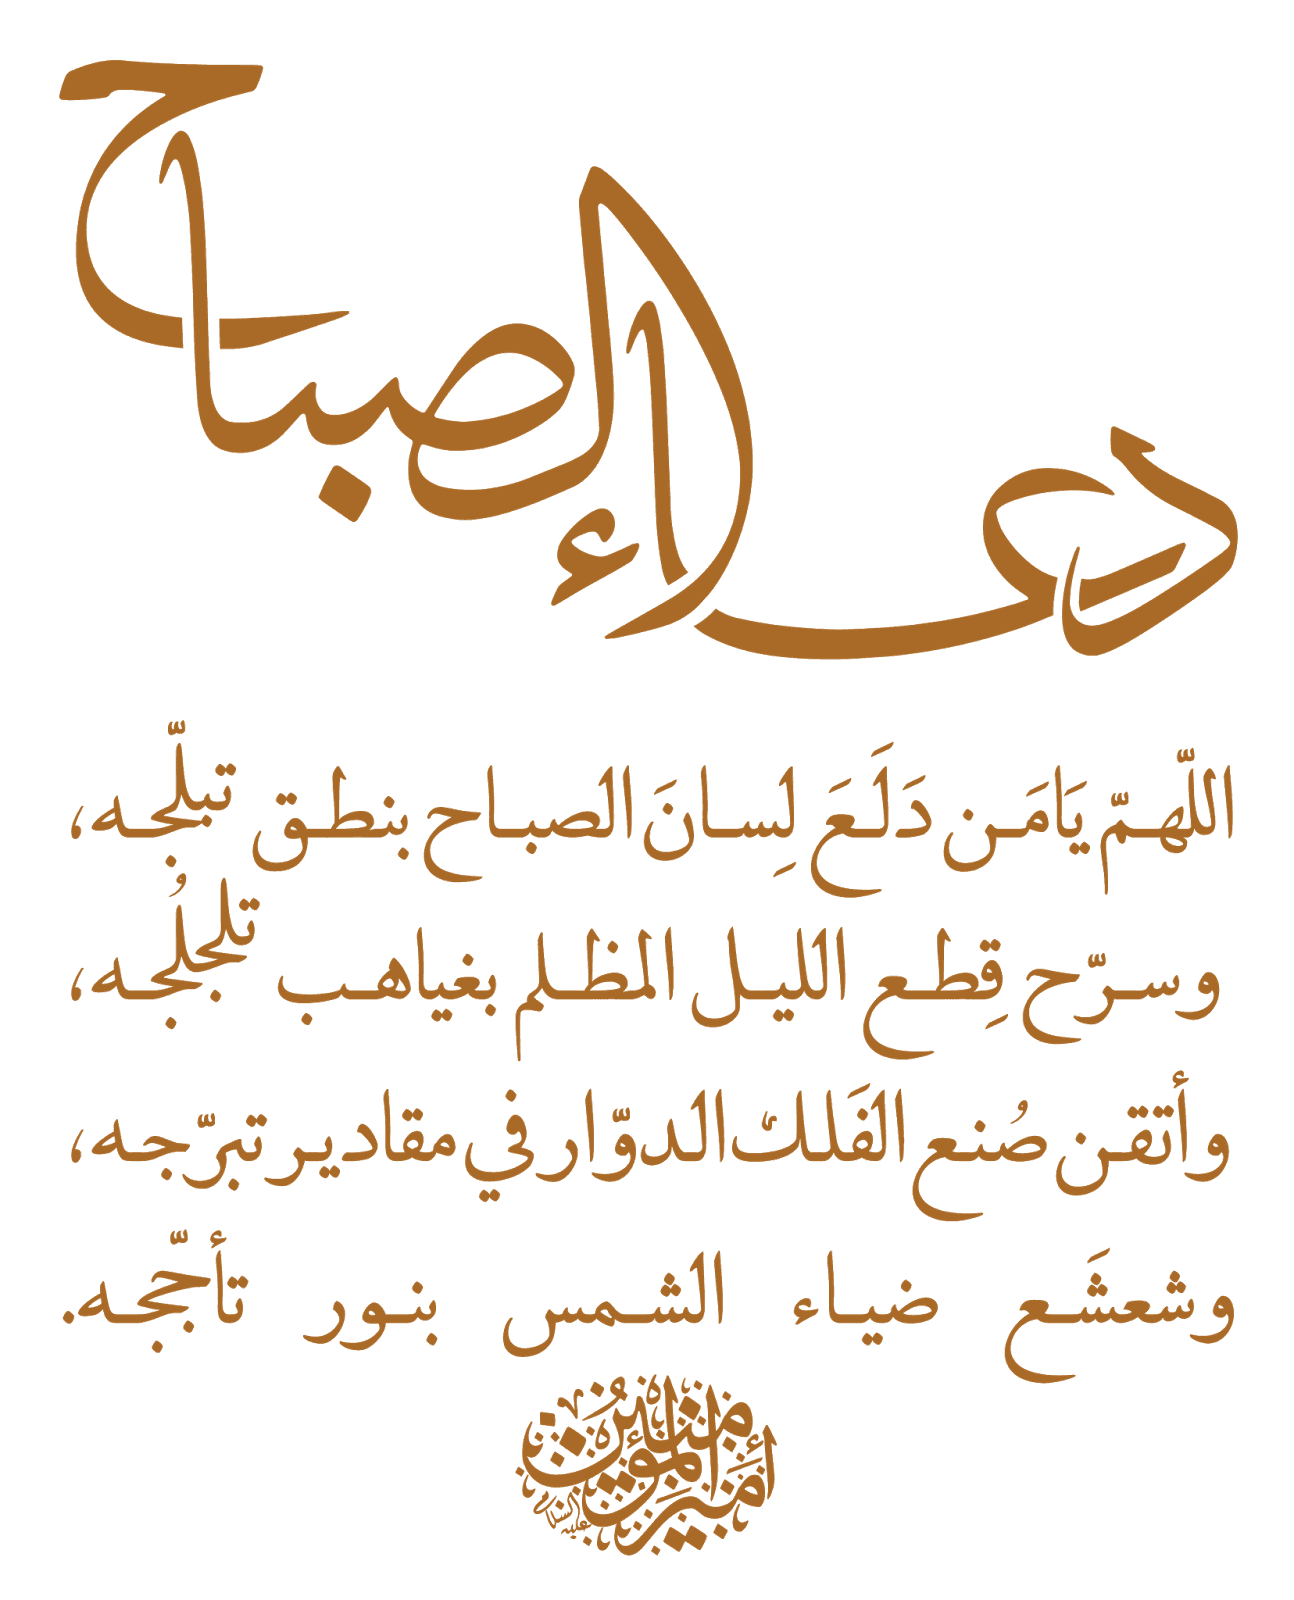 دعاء الصباح
اللّهمّ يَامَن دَلَعَ لِسانَ الصباح بنطق تبلّجه،
وسرّح قِطع الليل المظلم بغياهب تلجلُجه،
وأتقن صُنع الفَلك الدوّار في مقادير تبرّجه،
وشعشَع ضياء الشمس بنور تأجّجه.
مناجاة أمير المؤمنين
عليه السلام